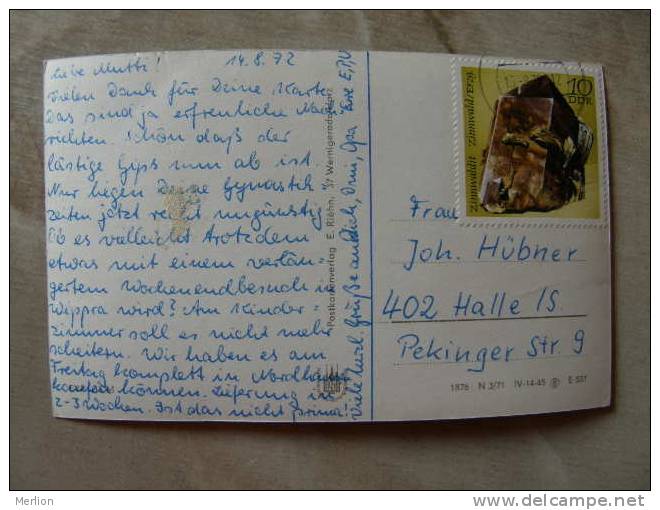 14.8.72
Liebe Mutti!
Vielen Dank für Deine Karte.
Das sind ja erfreuliche Nach-
richten. Schön daß der
lästige Gips nun ab ist.
Nur liegen Deine Gynastik-
zeiten jetzt recht ungünstig
Ob es vielleicht trotzdem
etwas mit einem verlän-
gertem Wochenendbesuch in
Wippra wird? Am Kinder-
zimmer soll es nicht mehr
scheitern. Wir haben es am
Freitag komplett in Nordhausen
kaufen können. Lieferung in
2-3 Wochen. Ist das nicht prima!
Viele herzl. Grüße an Dich, Omi, Opa Eure E,P,U
Postkartenverlag E. Riehn, 37 Wernigerode/Harz
Zinnwaldit Zinnwald/Erzg.
10
DDR
Frau
Joh. Hübner
402 Halle/S.
Pekinger Str. 9
1876 N 3/71 IV-14-45 E 537
Merlion
www.delcampe.net